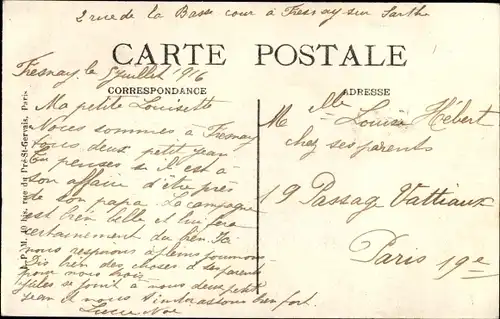 2 rue de la Basse cour à Fresnay sur Sarthe
CARTE POSTALE
Fresnay, le 5 juillet 1916
CORRESPONDANCE
ADRESSE
Ma petite Louisette
Nous sommes à Fresnay
tous deux petit jean
Tu penses si il est à
son affaire d'être près
de son papa. La campagne
est bien belle et lui fera
certainement du bien. Ici
nous respirons à pleins poumons
Dis bien des choses à tes parents
pour nous trois
Jules se joint à nous deux petit
jean et nous t'embrassons bien fort.
Lucie Noé
Mlle Louise Hébert
chez ses parents
19 Passage Vattiaux
Paris 19e
40 bis, rue du Pré-St-Gervais, Paris.